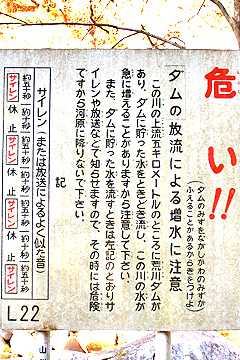 危い!!
(ダムのみずをながしかわのみずが
ふえることがあるからきをつけよ)
ダムの放流による増水に注意
この川の上流五キロメートルのところに荒川ダムが
あり、ダムに貯った水をときどき流し、この川の水が
急に増えることがありますから注意して下さい。
また、ダムに貯った水を流すときは左記のとおりサ
イレンや放送などで知らせますので、その時には危険
ですから河原に降りないで下さい。
記
サイレン(または放送によるよく似た音)
約五十秒 約十秒 約五十秒 約十秒 約五十秒 約十秒 約五十秒
サイレン 休止 サイレン 休止 サイレン 休止 サイレン
L22
山